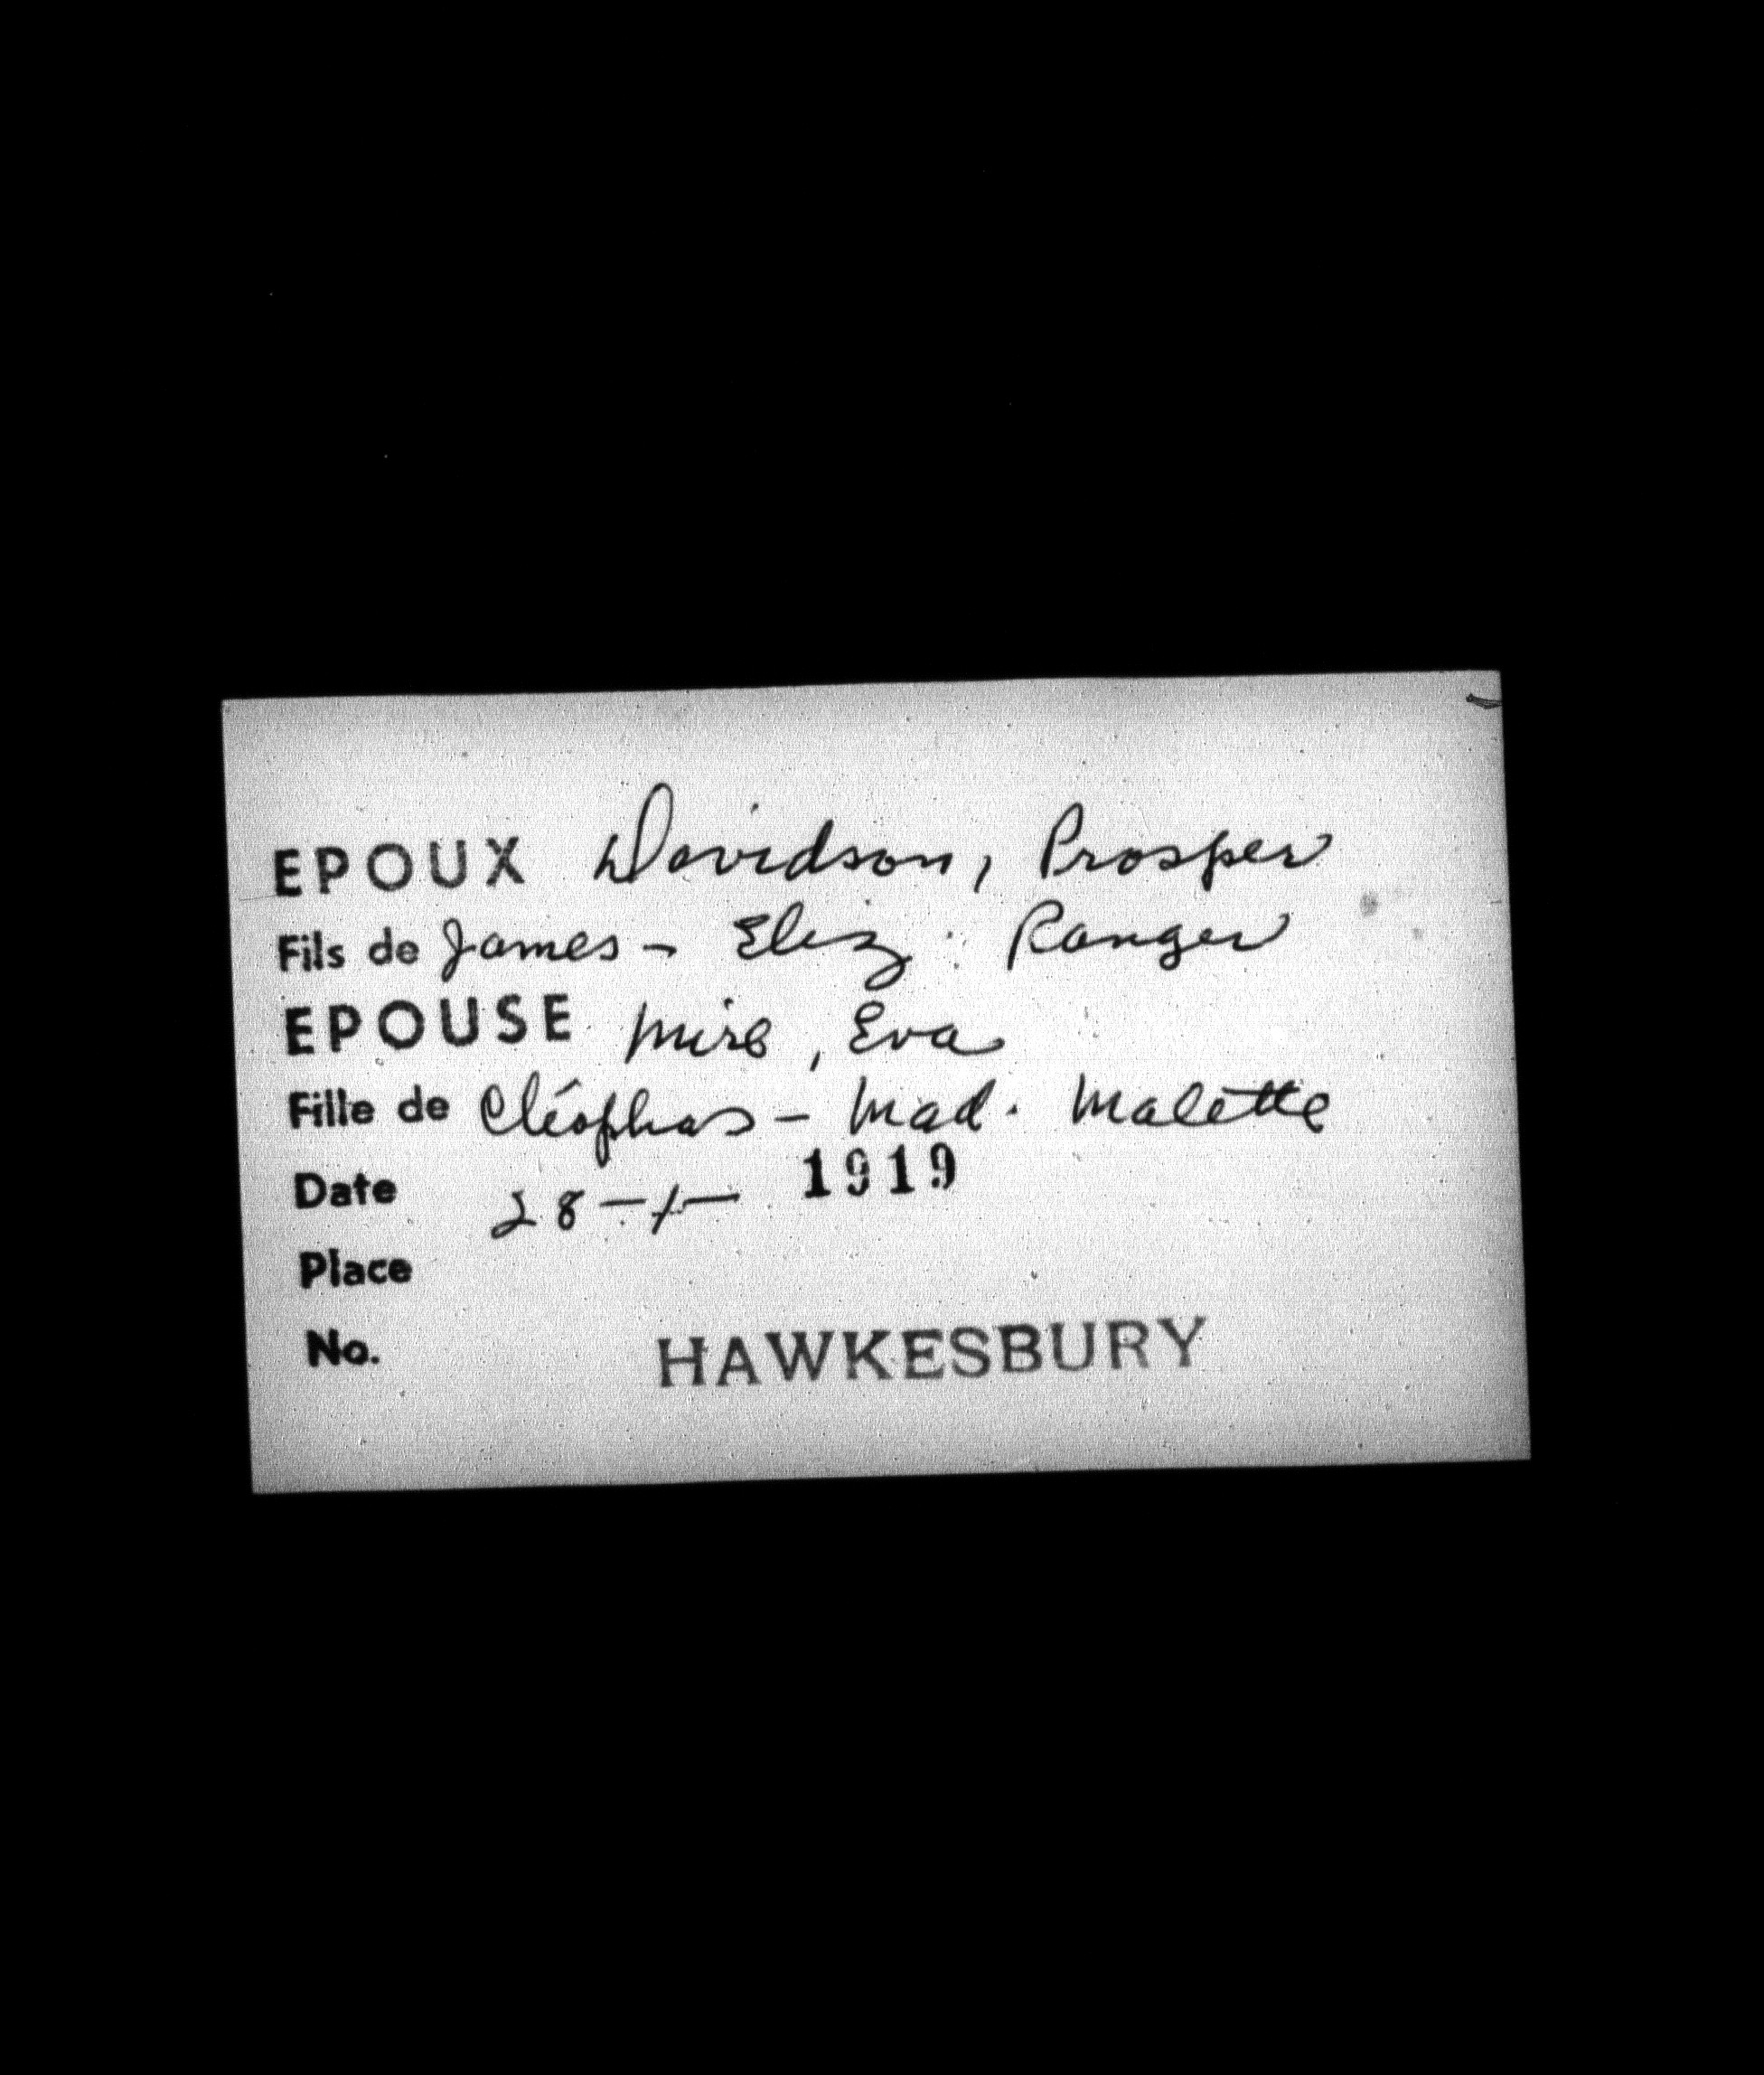 EPOUX Davidson, Prosper
Fils de James - Eliz. Ranger
EPOUSE Miré, Eva
Fille de Cléophas - Mad. Malette
Date 28-1- 1919
Place
No. HAWKESBURY